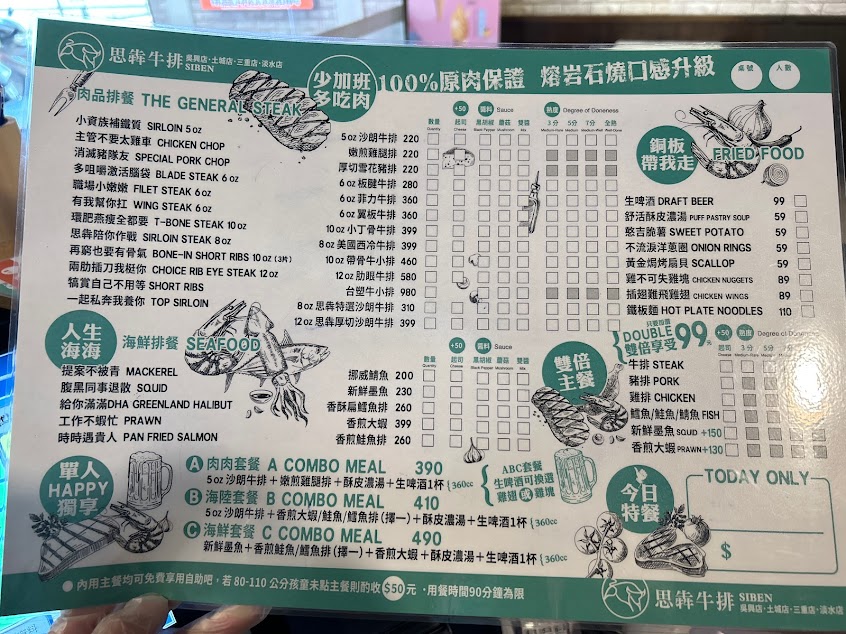 思犇牛排 吳興店·土城店·三重店·淡水店
SIBEN
少加班
多吃肉
100%原肉保證 熔岩石燒口感升級
桌號 人數
肉品排餐 THE GENERAL STEAK
數量 Quantity +50 起司 Cheese 醬料 Sauce 黑胡椒 Black Pepper 蘑菇 Mushroom 雙醬 Mix 熟度 Degree of Doneness 3分 Medium-Rare 5分 Medium 7分 Medium-Well 全熟 Well-Done
小資族補鐵質 SIRLOIN 5 oz 5 oz 沙朗牛排 220
主管不要太雞車 CHICKEN CHOP 嫩煎雞腿排 220
消滅豬隊友 SPECIAL PORK CHOP 厚切雪花豬排 220
多咀嚼激活腦袋 BLADE STEAK 6 oz 6 oz 板腱牛排 280
職場小嫩嫩 FILET STEAK 6 oz 6 oz 菲力牛排 360
有我幫你扛 WING STEAK 6 oz 6 oz 翼板牛排 360
環肥燕瘦全都要 T-BONE STEAK 10 oz 10 oz 小丁骨牛排 399
思犇陪你作戰 SIRLOIN STEAK 8 oz 8 oz 美國西冷牛排 399
再窮也要有骨氣 BONE-IN SHORT RIBS 10 oz (3片) 10 oz 帶骨牛小排 460
兩肋插刀我挺你 CHOICE RIB EYE STEAK 12 oz 12 oz 肋眼牛排 580
犒賞自己不用等 SHORT RIBS 台塑牛小排 980
一起私奔我養你 TOP SIRLOIN 8 oz 思犇特選沙朗牛排 310
12 oz 思犇厚切沙朗牛排 399
銅板
帶我走
FRIED FOOD
生啤酒 DRAFT BEER 99
舒活酥皮濃湯 PUFF PASTRY SOUP 59
憨吉脆薯 SWEET POTATO 59
不流淚洋蔥圈 ONION RINGS 59
黃金焗烤扇貝 SCALLOP 59
雞不可失雞塊 CHICKEN NUGGETS 89
插翅難飛雞翅 CHICKEN WINGS 89
鐵板麵 HOT PLATE NOODLES 110
人生
海海
海鮮排餐 SEAFOOD
數量 Quantity +50 起司 Cheese 醬料 Sauce 黑胡椒 Black Pepper 蘑菇 Mushroom 雙醬 Mix
提案不被青 MACKEREL 挪威鯖魚 200
腹黑同事退散 SQUID 新鮮墨魚 230
給你滿滿DHA GREENLAND HALIBUT 香酥扁鱈魚排 260
工作不蝦忙 PRAWN 香煎大蝦 399
時時遇貴人 PAN FRIED SALMON 香煎鮭魚排 260
雙倍
主餐
只要加價
DOUBLE
雙倍享受 99元
+50 熟度 Degree of Doneness
起司 Cheese 3分 Medium-Rare 5分 7分
牛排 STEAK
豬排 PORK
雞排 CHICKEN
鱈魚/鮭魚/鯖魚 FISH
新鮮墨魚 SQUID +150
香煎大蝦 PRAWN +130
單人
HAPPY
獨享
A 肉肉套餐 A COMBO MEAL 390
5 oz 沙朗牛排+嫩煎雞腿排+酥皮濃湯+生啤酒1杯 360cc
B 海陸套餐 B COMBO MEAL 410
5 oz 沙朗牛排+香煎大蝦/鮭魚/鱈魚排(擇一)+酥皮濃湯+生啤酒1杯 360cc
C 海鮮套餐 C COMBO MEAL 490
新鮮墨魚+香煎鮭魚/鱈魚排(擇一)+香煎大蝦+酥皮濃湯+生啤酒1杯 360cc
ABC套餐
生啤酒可換選
雞翅 或 雞塊
今日
特餐
TODAY ONLY
$
內用主餐均可免費享用自助吧,若 80-110 公分孩童未點主餐則酌收 $50元 · 用餐時間90分鐘為限
思犇牛排 SIBEN
吳興店·土城店·三重店·淡水店